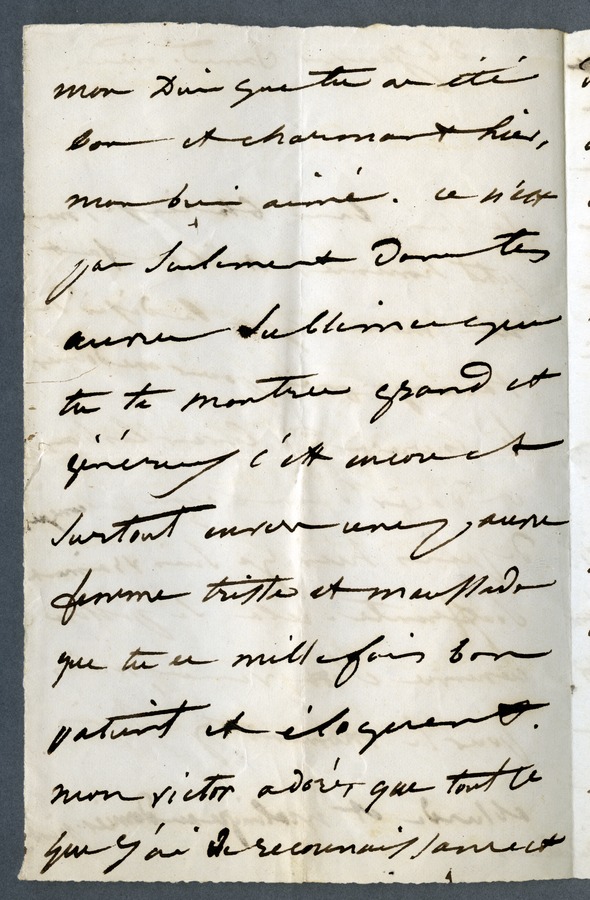 mon Dieu que tu as été
bon et charmant hier,
mon bien aimé. ce n'est
pas seulement dans tes
œuvres sublimes que
tu te montres grand et
généreux c'est encore et
surtout envers une pauvre
femme triste et maussade
que tu es mille fois bon
patient et éloquent.
mon victor adoré, que tout ce
que j'ai de reconnaissance et